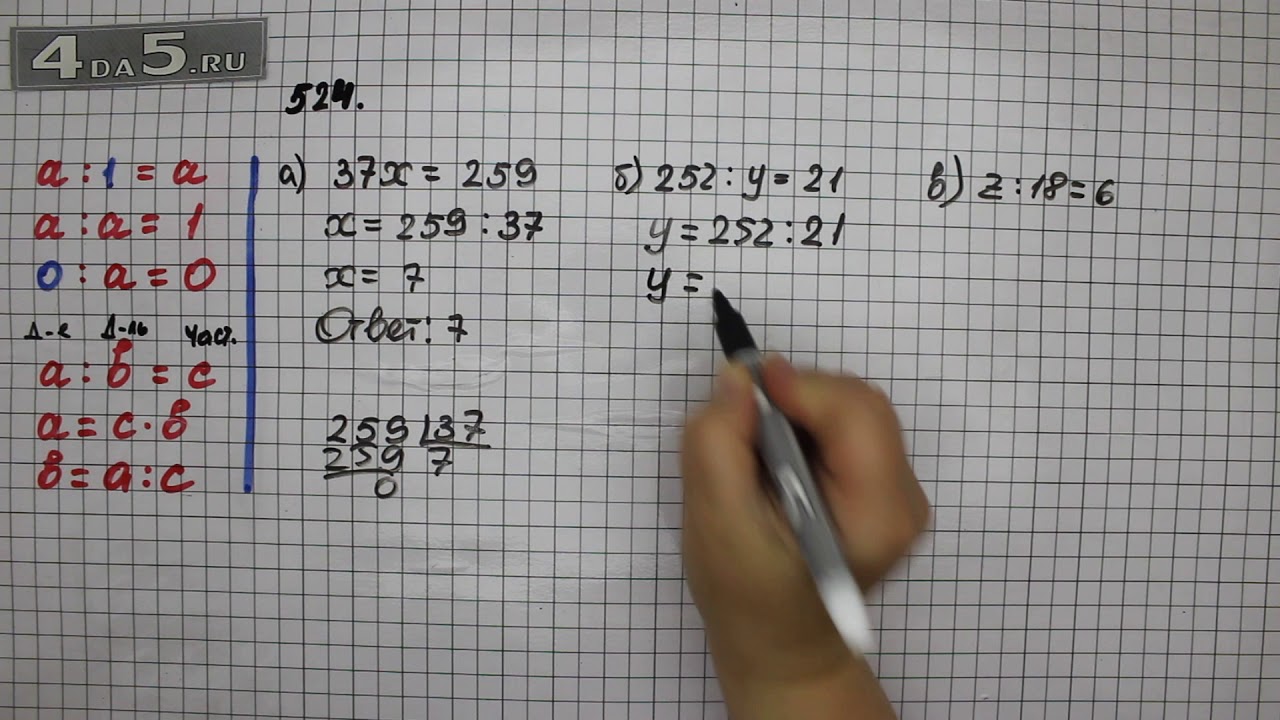 4DA5.RU
524.
a : 1 = a
a : a = 1
0 : a = 0
Д-е Д-ль Част.
a : в = c
a = c · в
в = a : c
а) 37x = 259
x = 259 : 37
x = 7
Ответ: 7
259 37
259 7
0
б) 252 : y = 21
y = 252 : 21
y =
в) z : 18 = 6